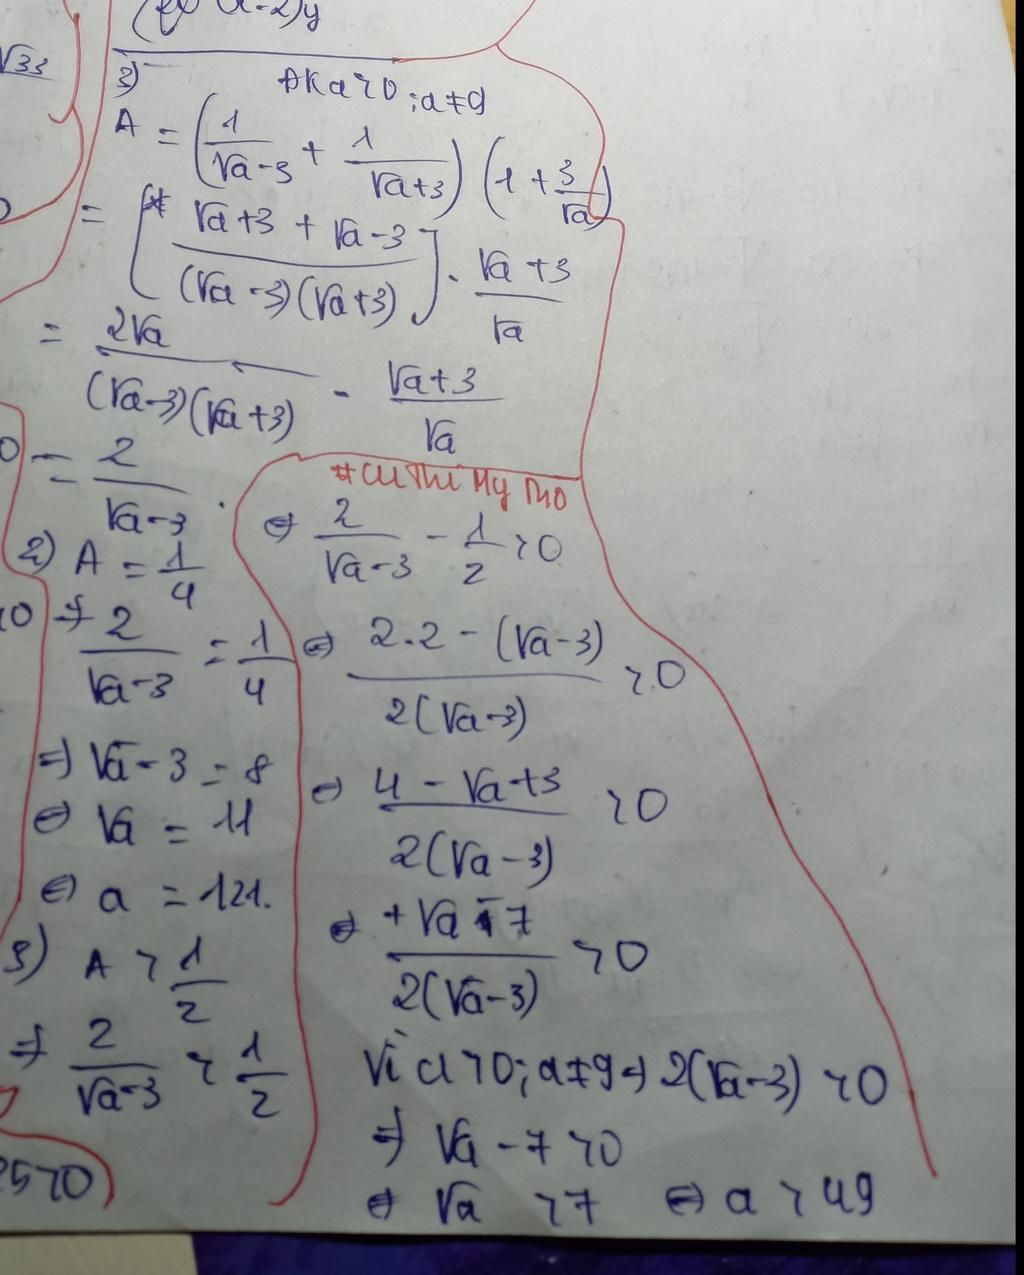 (x-2)y
√33
3)
ĐK a>0; a≠9
A = (1/(√a-3) + 1/(√a+3)) (1 + 3/√a)
= [(√a+3 + √a-3)/((√a-3)(√a+3))] . (√a+3)/√a
= 2√a/((√a-3)(√a+3)) - (√a+3)/√a
= 2/(√a-3) .
2) A = 1/4
⇒ 2/(√a-3) = 1/4
⇒ √a-3 = 8
⇔ √a = 11
⇔ a = 121.
3) A > 1/2
⇒ 2/(√a-3) > 1/2
#Cù Thị Mỹ
⇔ 2/(√a-3) - 1/2 > 0
⇔ (2.2 - (√a-3))/(2(√a-3)) > 0
⇔ (4 - √a+3)/(2(√a-3)) > 0
⇔ (+√a - 7)/(2(√a-3)) > 0
Vì a>0; a≠9 ⇒ 2(√a-3) > 0
⇒ √a - 7 > 0
⇔ √a > 7 ⇔ a > 49